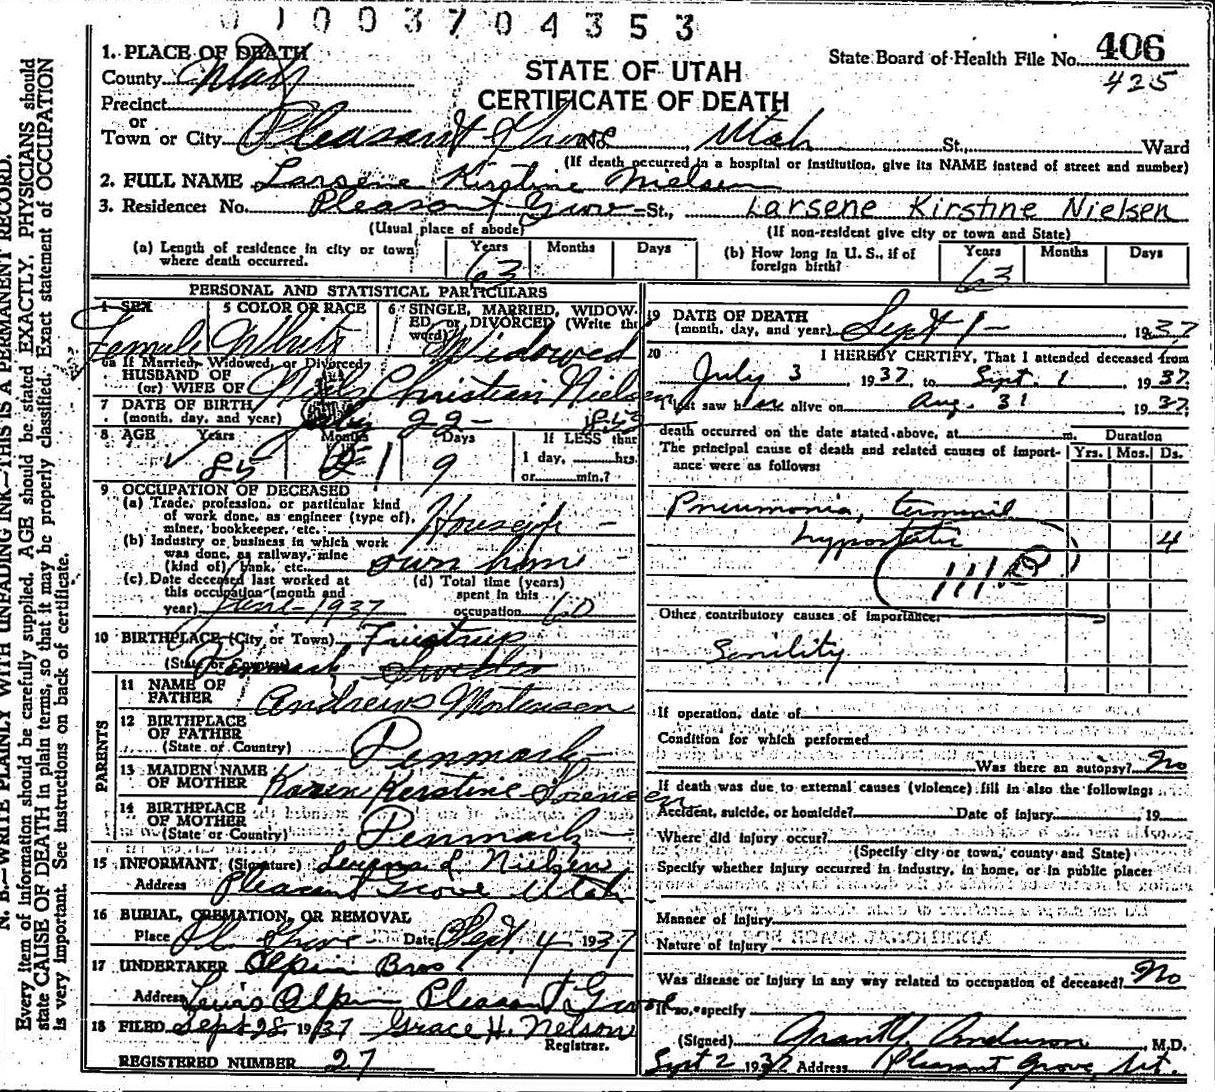 0 1 0 0 3 7 0 4 3 5 3
1. PLACE OF DEATH
County Utah
Precinct
or
Town or City Pleasant Grove No. Utah St., Ward
STATE OF UTAH
CERTIFICATE OF DEATH
State Board of Health File No. 406
425
(If death occurred in a hospital or institution, give its NAME instead of street and number)
2. FULL NAME Larsene Kirstine Nielsen
3. Residence: No. Pleasant Grove St., Larsene Kirstine Nielsen
(Usual place of abode) (If non-resident give city or town and State)
(a) Length of residence in city or town where death occurred. Years 63 Months Days
(b) How long in U. S., if of foreign birth? Years 63 Months Days
PERSONAL AND STATISTICAL PARTICULARS
4 SEX Female
5 COLOR OR RACE White
6 SINGLE, MARRIED, WIDOWED, or DIVORCED (Write the word) Widowed
6a If Married, Widowed, or Divorced
HUSBAND OF
(or) WIFE OF Niels Christian Nielsen
7 DATE OF BIRTH
(month, day, and year) July 22-
8 AGE Years 85 Months 1 Days 9
If LESS than
1 day, hrs.
or min.?
9 OCCUPATION OF DECEASED
(a) Trade, profession, or particular kind
of work done, as engineer (type of),
miner, bookkeeper, etc. Housewife
(b) Industry or business in which work
was done, as railway, mine
(kind of), bank, etc. own home
(c) Date deceased last worked at
this occupation (month and
year) June-1937
(d) Total time (years)
spent in this
occupation 60
10 BIRTHPLACE (City or Town)
(State or Country) Denmark
PARENTS
11 NAME OF
FATHER Andrews Mortensen
12 BIRTHPLACE
OF FATHER
(State or Country) Denmark
13 MAIDEN NAME
OF MOTHER Karen Kerstine Sorensen
14 BIRTHPLACE
OF MOTHER
(State or Country) Denmark
15 INFORMANT (Signature) Nielsen
Address Pleasant Grove Utah
16 BURIAL, CREMATION, OR REMOVAL
Place Pl. Grove Date Sept. 4 1937
17 UNDERTAKER Olpin Bros
Address Lewis Olpin Pleasant Grove
18 FILED Sept 28 1937 Grace H. Nelson
Registrar.
REGISTERED NUMBER 27
19 DATE OF DEATH
(month, day, and year) Sept 1- 1937
20 I HEREBY CERTIFY, That I attended deceased from
July 3, 1937, to Sept. 1, 1937.
I last saw her alive on Aug. 31, 1937.
death occurred on the date stated above, at m.
Duration
Yrs. Mos. Ds.
The principal cause of death and related causes of importance were as follows:
Pneumonia, terminal
hypostatic 4
111B
Other contributory causes of importance:
Senility
If operation, date of
Condition for which performed
Was there an autopsy? No
If death was due to external causes (violence) fill in also the following:
Accident, suicide, or homicide? Date of injury 19
Where did injury occur?
(Specify city or town, county and State)
Specify whether injury occurred in industry, in home, or in public place:
Manner of injury
Nature of injury
Was disease or injury in any way related to occupation of deceased? No
If so, specify
(Signed) Grant Y. Anderson, M.D.
Sept 2 1937 Address Pleasant Grove, Ut.
N. B.—WRITE PLAINLY WITH UNFADING INK—THIS IS A PERMANENT RECORD.
Every item of information should be carefully supplied. AGE should be stated EXACTLY. PHYSICIANS should
state CAUSE OF DEATH in plain terms, so that it may be properly classified. Exact statement of OCCUPATION
is very important. See instructions on back of certificate.